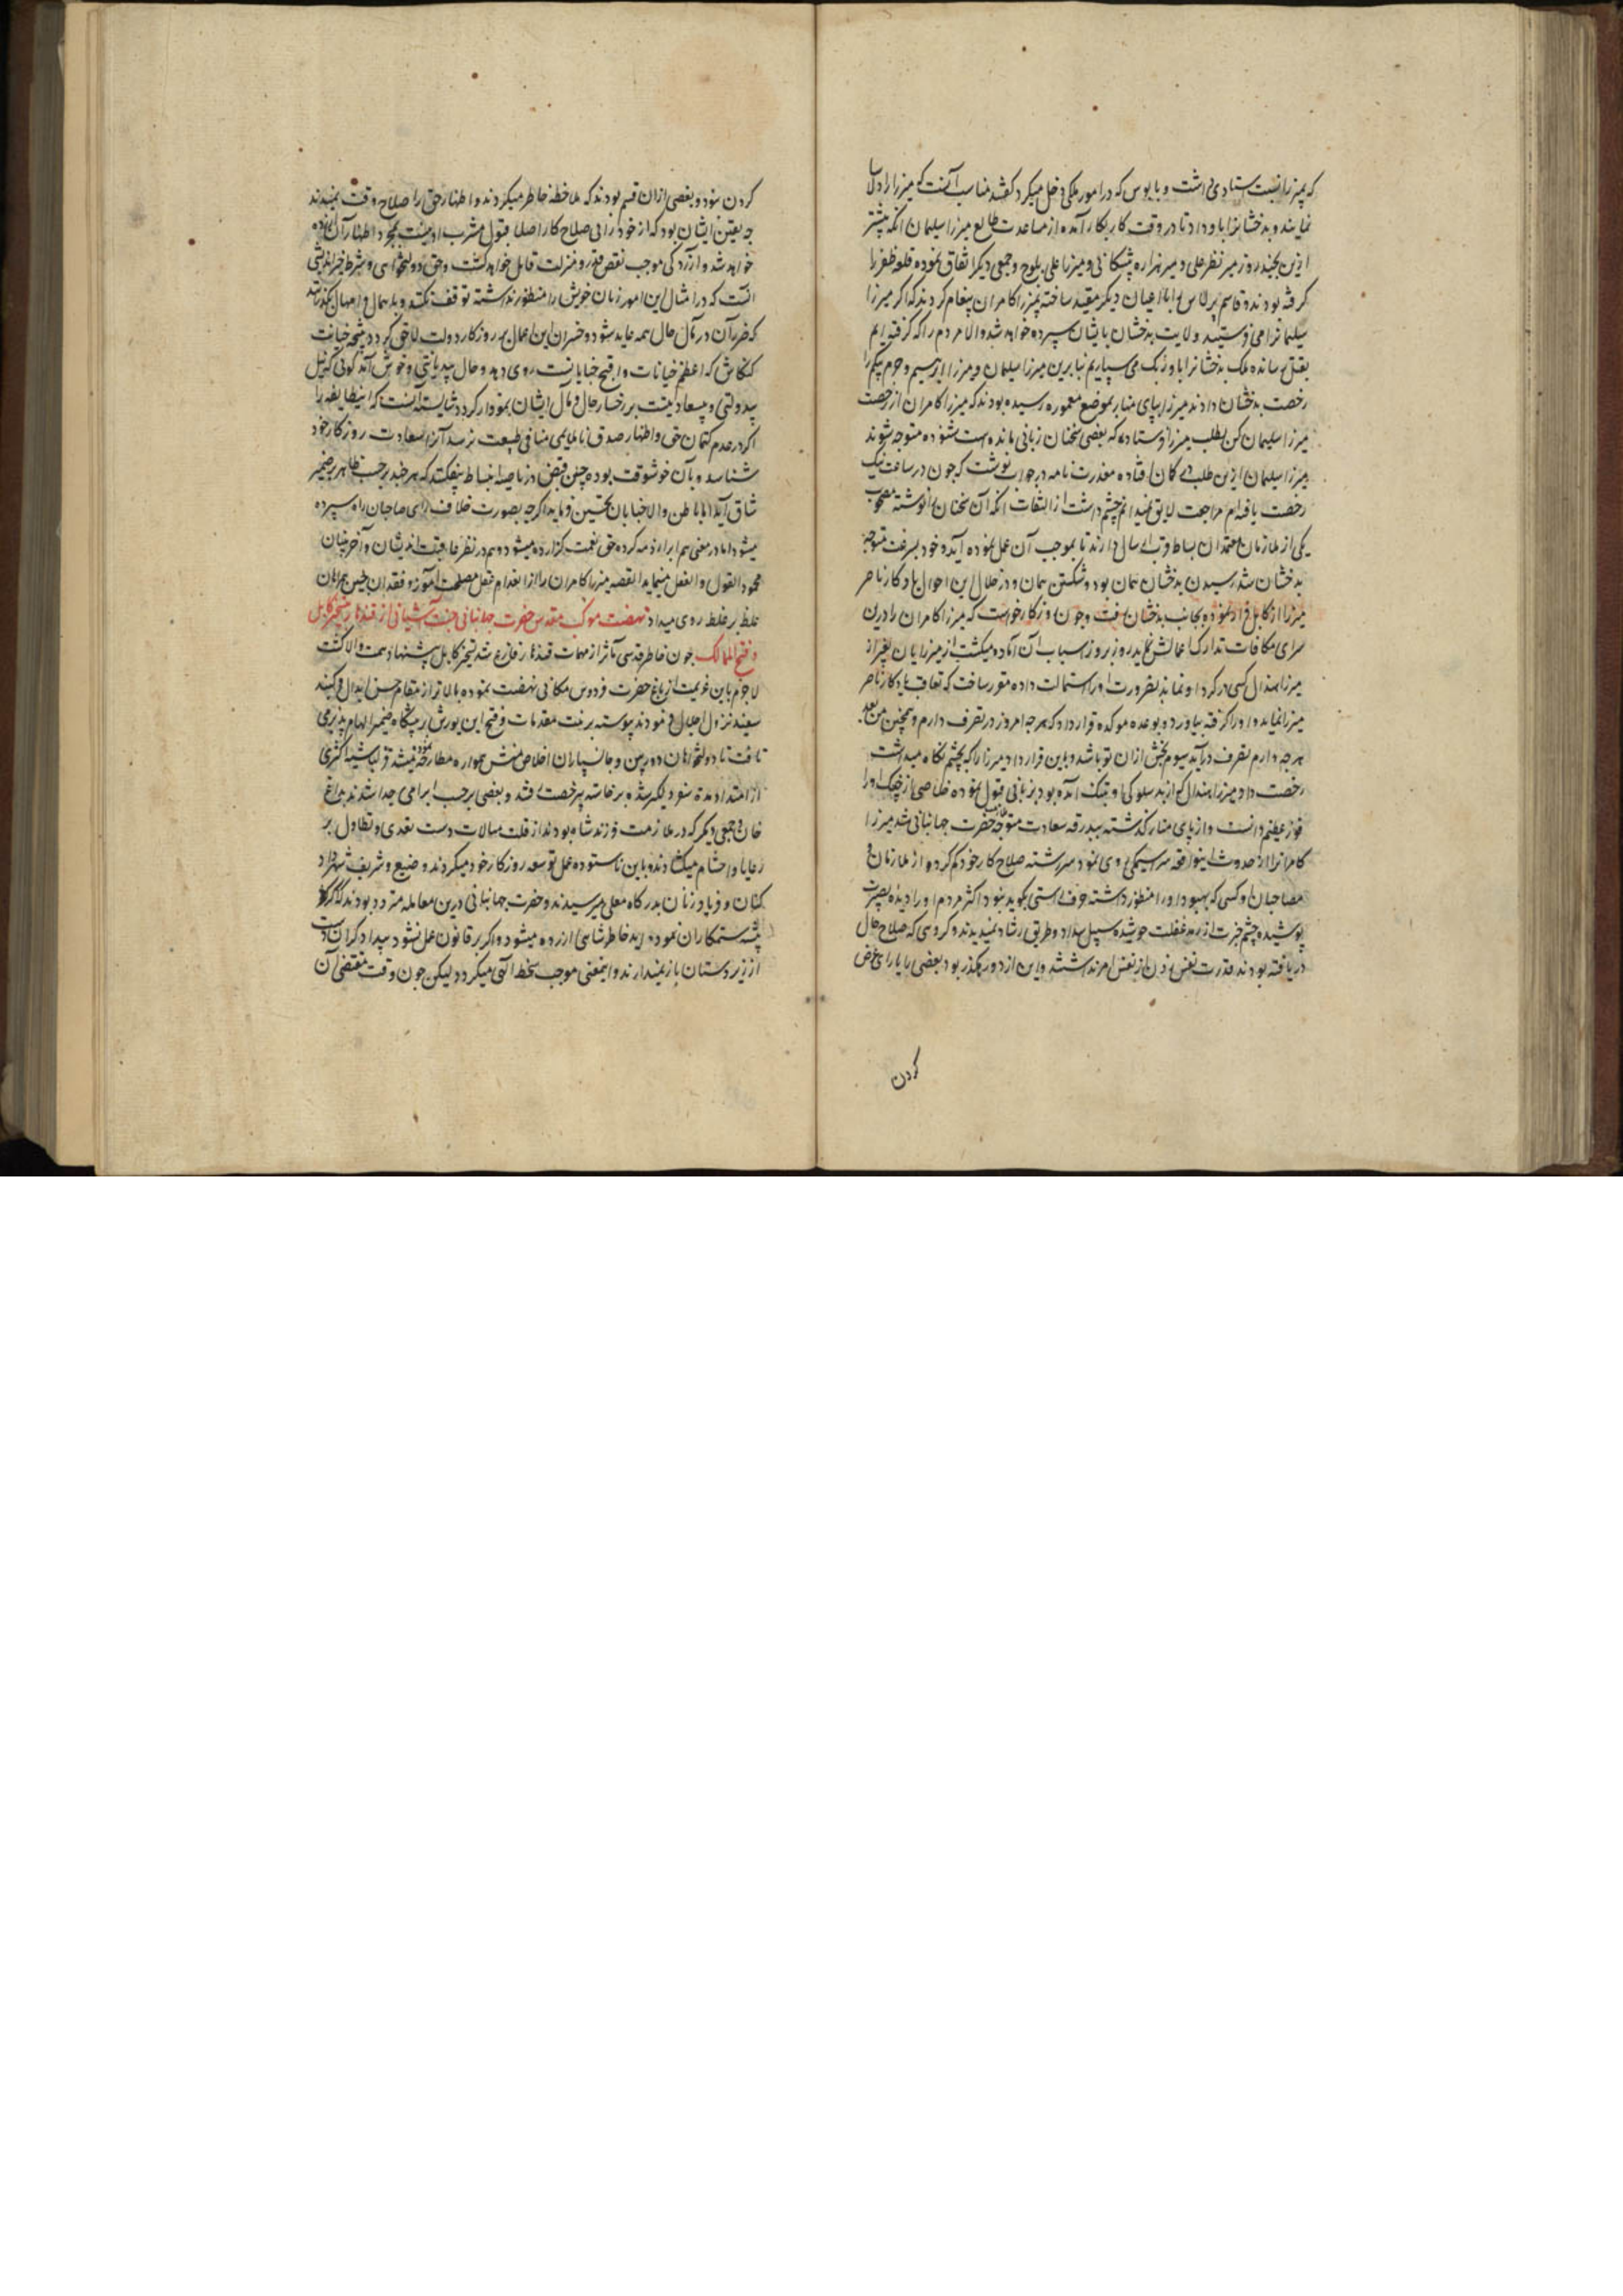 که بمیرزا نسبت استادی داشت و بابوس که در امور ملکی دخل میکرد گفتند مناسب آنست که میرزا را دلاسا
نمایند و بدخشانرا باو داد تا در وقت کار بکار آمده از مساعدت طالع میرزا سلیمان آنکه پیشتر
ازین بچند روز میر نظر علی و میر هزاره تیشکانی و میرزا علی بلوج و جمعی دیگر اتفاق نموده قلعه ظفر را
گرفته بودند و قاسم برلاس را با اعیان دیگر مقید ساخته بمیرزا کامران پیغام کردند که اگر میرزا
سلیمانرا می فرستید ولایت بدخشان بایشان سپرده خواهد شد والا مردم را که گرفته ایم
بقتل رسانده ملک بدخشانرا باوزبک می سپاریم بنابرین میرزا سلیمان و میرزا ابراهیم و حرم بیکم را
رخصت بدخشان دادند میرزا بپای منار بموضع معموره رسیده بودند که میرزا کامران از رخصت
میرزا سلیمان کس بطلب میرزا فرستاده که بعضی سخنان زبانی مانده است شنوده متوجه شوند
میرزا سلیمان ازین طلب در کمان افتاده معذرت نامه در جواب نوشت که چون در ساعت نیک
رخصت یافته ام مراجعت لایق نمیدانم چشم داشت از التفات آنکه آن سخنان را نوشته مصحوب
یکی از ملازمان معتمدان بساط قرب ارسال دارند تا بموجب آن عمل نموده آید و خود بسرعت متوجه
بدخشان شد رسیدن بدخشان همان بود و شکستن پیمان همان و در خلال این احوال یادگار ناصر
میرزا از کابل فرار نموده بجانب بدخشان رفت و چون روزگار خواست که میرزا کامران را درین
سرای مکافات تدارک اعمالش نماید روز بروز اسباب آن آماده میکشت از میرزایان بغیر از
میرزا هندال کسی در گرد او نماند بضرورت او را استمالت داده مقرر ساخت که تعاقب یادگار ناصر
میرزا نماید و او را گرفته بیاورد و بوعده موکده قرار داد که هرچه امروز در تصرف دارم و همچنین من بعد
هرچه دارم تصرف درآید سیوم بخش ازان تو باشد و باین قرار داد میرزا را که بچشم نگاه میداشت
رخصت داد میرزا هندال که از بد سلوکی او بتنگ آمده بود بزبانی قبول نموده خلاصی از چنگ او را
فوز عظیم دانست و از پای منار گذشته ببدرقه سعادت متوجه ملازمت حضرت جهانبانی شد میرزا
کامرانرا از حدوث اینواقعه سراسیمگی روی نمود سررشته صلاح کار خود گم کرده از ملازمان و
مصاحبان او کسی که بهبود او را منظور داشته حرف راستی بگوید نبود اکثر مردم او را دیده بصیرت
پوشیده چشم خیرت از رمد غفلت جوشیده سبیل سداد و طریق رشاد نمیدیدند و گروهی که صلاح حال
دریافته بودند قدرت نفس زدن از نفس امر نداشتند و این از دو رهگذر بود بعضی را یارای عرض
کردن
کردن نبود و بعضی ازان قسم بودند که ملاحظه خاطر میکردند و اظهار حق را صلاح وقت نمیدیدند
چه یقین ایشان بود که از خود رائی صلاح کار اصلا قبول مشرب او نیست بمجرد اظهار آن آزرده
خواهد شد و آزردگی موجب نقص قدر و منزلت قایل خواهد گشت و حق دولتخواهی و شرط خیراندیشی
آنست که در امثال این امور زیان خویش را منظور نداشته توقف نکنند و باهمال و امهال نگذرانند
که ضرر آن در مآل حال همه عاید شود و خسران این اعمال بر روزگار دولت لاحق گردد نتیجه خیانت
کنکاش که اعظم خیانات و اقبح خبایا نست روی دهد و حال بد دیانتی و خوش آمد گوئی که نیل
بیدولتی و بیسعادتیست بر رخسار حال و مآل ایشان نمودار گردد شایسته آنست که اینطایفه را
اگر در عدم کتمان حق و اظهار صدق ناملایمی منافی طبیعت نرسد آنرا سعادت روزگار خود
شناسد و بآن خوشوقت بوده چین قبض در ناصیه انبساط نیفکنند که هر چند برحسب ظاهر بر ضمیر
شاق آید اما باطن والا خبایان تحسین فرماید اگرچه بصورت خلاف رای صاحبان راه سپرده
میشود اما در معنی هم ابراء ذمه کرده حق نعمت گزارده میشود و هم در نظر عاقبت اندیشان و آخربینان
محمود القول و الفعل مینماید القصه میرزا کامران را از انعدام عقل مصلحت آموز و فقدان چنین همراهان
غلط بر غلط روی میداد نهضت موکب مقدس حضرت جهانبانی جنت آشیانی از قندهار بتسخیر کابل
و فتح الممالک چون خاطر قدسی مآثر از مهمات قندهار فارغ شد تسخیر کابل پیشنهاد همت والا گشت
لاجرم باین عزیمت از باغ حضرت فردوس مکانی نهضت نموده بالاتر از مقام حسن ابدال در گنبد
سفید نزول اجلال فرمودند پیوسته بر نیت مقدمات و فتح این یورش در پیشگاه ضمیر الهام پذیر می
تافت تا دولتخواهان دوربین و جانسپاران اخلاص منش همواره مطارحه نموده میشد قزلباشیه اکثری
از امتداد مدة سفر دلگیر شده برخاسته برخصت رفتند و بعضی برحسب ابرامی جدا شدند بداغ
خان و جمعی دیگر که در ملازمت فرزند شاه بودند از قلت مبالات دست تعدی و تطاول بر
رعایا و احشام میکشادند و باین ناستوده عمل توسعه روزگار خود میکردند وضیع و شریف شهر داد
کنان و فریاد زنان بدرگاه معلی میرسیدند و حضرت جهانبانی درین معامله متردد بودند که اگر
پیشه ستمکاران نموده آید خاطر شاهی آزرده میشود و اگر بر قانون عمل نشود بیدادگران دست
از زیردستان باز نمیدارند و اینمعنی موجب سخط الهی میگردد لیکن چون وقت مقتضی آن